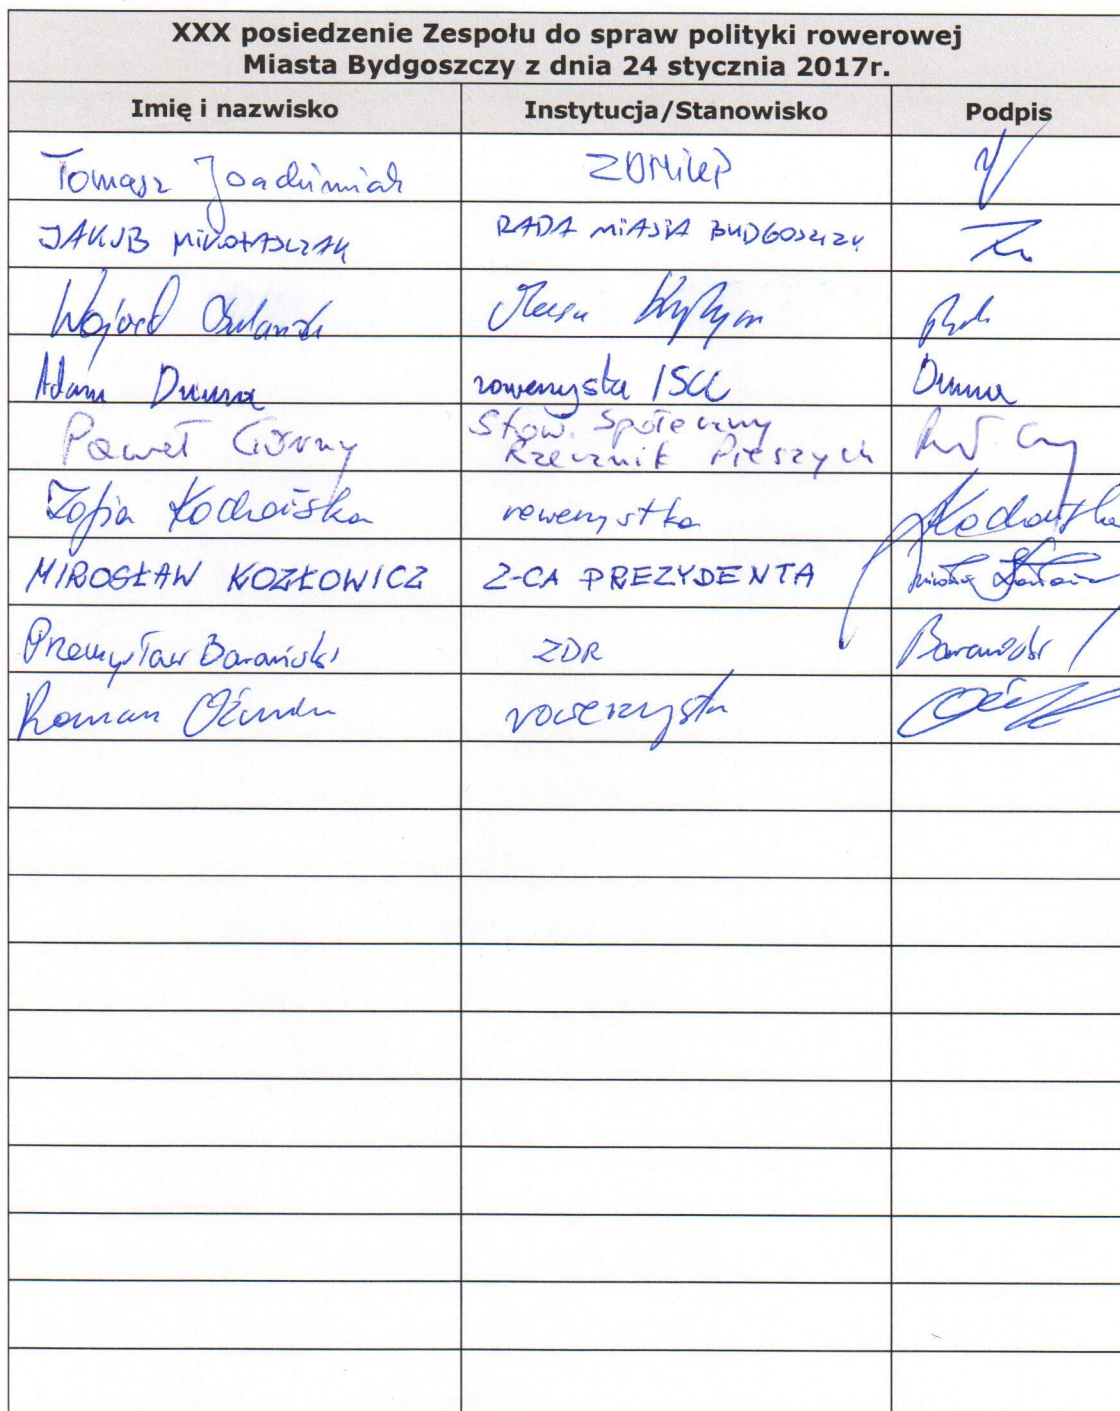 XXX posiedzenie Zespołu do spraw polityki rowerowej
Miasta Bydgoszczy z dnia 24 stycznia 2017r.
Imię i nazwisko Instytucja/Stanowisko Podpis
Tomasz Joachimiak ZDMiKP
JAKUB MIKOŁAJCZAK RADA MIASTA BYDGOSZCZY
Adam Dumna rowerzysta
Paweł Górny Stow. Społeczny
Rzecznik Pieszych
Zofia rowerzystka
MIROSŁAW KOZŁOWICZ Z-CA PREZYDENTA
Przemysław Barański ZDR Barański
Roman rowerzysta